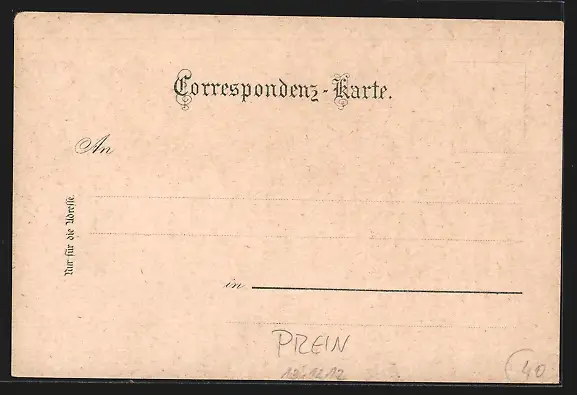 Correspondenz-Karte.
An
Nur für die Adresse.
in
PREIN
40